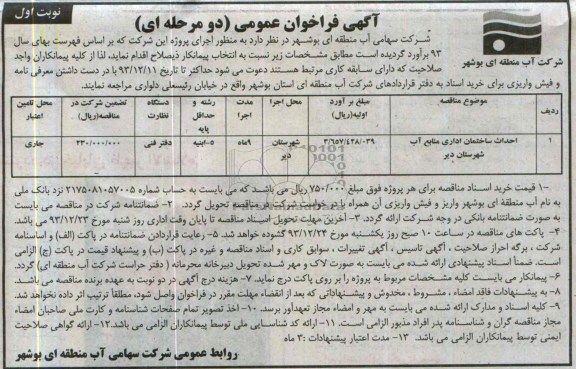 نوبت اول
آگهی فراخوان عمومی (دو مرحله ای)
شرکت آب منطقه ای بوشهر
شرکت سهامی آب منطقه ای بوشهر در نظر دارد به منظور اجرای پروژه این شرکت که بر اساس فهرست بهای سال
۹۳ برآورد گردیده است مطابق مشخصات زیر نسبت به انتخاب پیمانکار ذیصلاح اقدام نماید، لذا از کلیه پیمانکاران واجد
صلاحیت که دارای سابقه کاری مرتبط هستند دعوت می شود حداکثر تا تاریخ ۹۳/۱۲/۱۱ با در دست داشتن معرفی نامه
و فیش واریزی برای خرید اسناد به دفتر قراردادهای شرکت آب منطقه ای استان بوشهر واقع در خیابان رئیسعلی دلواری مراجعه نمایند.
ردیف موضوع مناقصه مبلغ بر آورد اولیه(ریال) محل اجرا مدت اجرا رشته و حداقل پایه دستگاه نظارت تضمین شرکت در مناقصه(ریال) محل تامین اعتبار
۱ احداث ساختمان اداری منابع آب شهرستان دیر ۳/۹۵۷/۴۲۸/۰۳۹ شهرستان دیر ۹ماه ۵-ابنیه دفتر فنی ۲۳۰/۰۰۰/۰۰۰ جاری
۱- قیمت خرید اسناد مناقصه برای هر پروژه فوق مبلغ ۷۵۰/۰۰۰ ریال می باشد که می بایست به حساب شماره ۲۱۷۵۰۸۱۰۵۷۰۰۵ نزد بانک ملی
به نام آب منطقه ای بوشهر واریز و فیش واریزی آن همراه با درخواست شرکت در مناقصه تحویل گردد. ۲- ضمانتنامه شرکت در مناقصه می بایست
به صورت ضمانتنامه بانکی در وجه شرکت ارائه گردد. ۳- آخرین مهلت تحویل اسناد مناقصه تا پایان وقت اداری روز شنبه مورخ ۹۳/۱۲/۲۳ می باشد.
۴- پاکت های مناقصه در ساعت ۱۰ صبح روز یکشنبه مورخ ۹۳/۱۲/۲۴ گشوده خواهد شد. ۵- رعایت قراردادن ضمانتنامه در پاکت (الف) و اساسنامه
شرکت، برگه احراز صلاحیت، آگهی تاسیس، آگهی تغییرات، سوابق کاری و اسناد مناقصه و غیره در پاکت (ب) و پیشنهاد قیمت در پاکت (ج) الزامی
است. ضمناً اسناد پیشنهادی ارائه شده می بایست به صورت لاک و مهر شده تحویل دبیرخانه محرمانه (دفتر حراست شرکت آب منطقه ای) گردد.
۶- پیمانکار می بایست کلیه مشخصات مربوط به پروژه را بر روی پاکت درج نماید. ۷- هزینه درج آگهی در دو نوبت به عهده برنده مناقصه می باشد.
۸- به پیشنهادات فاقد امضاء، مشروط، مخدوش و پیشنهاداتی که بعد از انقضاء مهلت مقرر در فراخوان واصل شود، مطلقاً ترتیب اثر داده نخواهد شد.
۹- کلیه اسناد و مدارک ارائه شده می بایست به مهر و امضاء مجاز تعهدآور برسد. ۱۰- اخذ تصویر تمام صفحات شناسنامه و کارت ملی صاحبان امضاء
مجاز مناقصه گران و شناسنامه پدر افراد مذبور الزامی است. ۱۱- ارائه کد شناسایی ملی توسط پیمانکاران الزامی می باشد.۱۲- ارائه گواهی صلاحیت
ایمنی توسط پیمانکاران الزامی می باشد. ۱۳- مدت اعتبار پیشنهادات :۳ ماه
روابط عمومی شرکت سهامی آب منطقه ای بوشهر